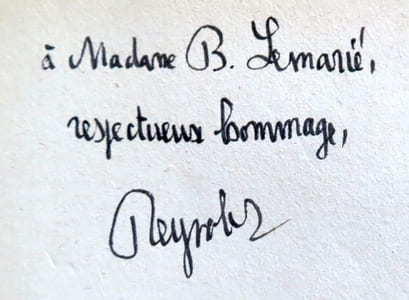 à Madame B. Lemarié,
respectueux hommage,